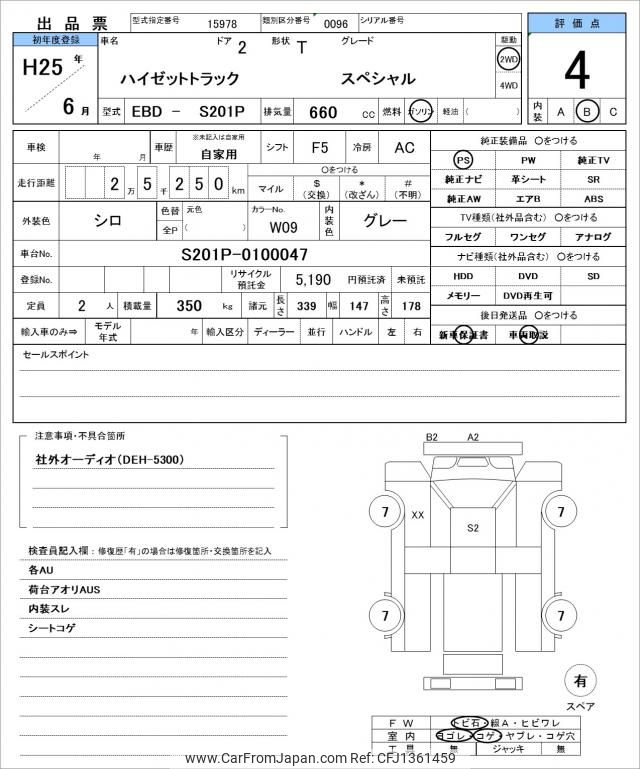 出 品 票
型式指定番号 15978 類別区分番号 0096 シリアル番号
評 価 点
4
内装 A B C
初年度登録
H25 年
6 月
車名 ドア 2 形状 T グレード 駆動
ハイゼットトラック スペシャル
2WD
4WD
型式 EBD － S201P 排気量 660 CC 燃料 ガソリン 軽油 ( )
車検 年 月 車歴 ※未記入は自家用 自家用 シフト F5 冷房 AC
走行距離 2 万 5 千 2 5 0 km
〇をつける
マイル $ (交換) * (改ざん) # (不明)
外装色 シロ 色替 全P 元色 ( ) カラーNo. W09 内装色 グレー
車台No. S201P-0100047
登録No. リサイクル預託金 5,190 円預託済 未預託
定員 2 人 積載量 350 kg 諸元 長さ 339 幅 147 高さ 178
輸入車のみ⇒ モデル年式 年 輸入区分 ディーラー 並行 ハンドル 左 右
純正装備品 〇をつける
PS PW 純正TV
純正ナビ 革シート SR
純正AW エアB ABS
TV種類(社外品含む) 〇をつける
フルセグ ワンセグ アナログ
ナビ種類(社外品含む) 〇をつける
HDD DVD SD
メモリー DVD再生可
後日発送品 〇をつける
新車保証書 車両取説
セールスポイント
注意事項・不具合箇所
社外オーディオ(DEH-5300)
検査員記入欄：修復歴「有」の場合は修復箇所・交換箇所を記入
各AU
荷台アオリAUS
内装スレ
シートコゲ
B2 A2
7 XX S2 7
7 7
有
スペア
F W トビ石・線A・ヒビワレ
室 内 ヨゴレ・コゲ・ヤブレ・コゲ穴
工 具 無 ジャッキ 無
www.CarFromJapan.com Ref:CFJ1361459